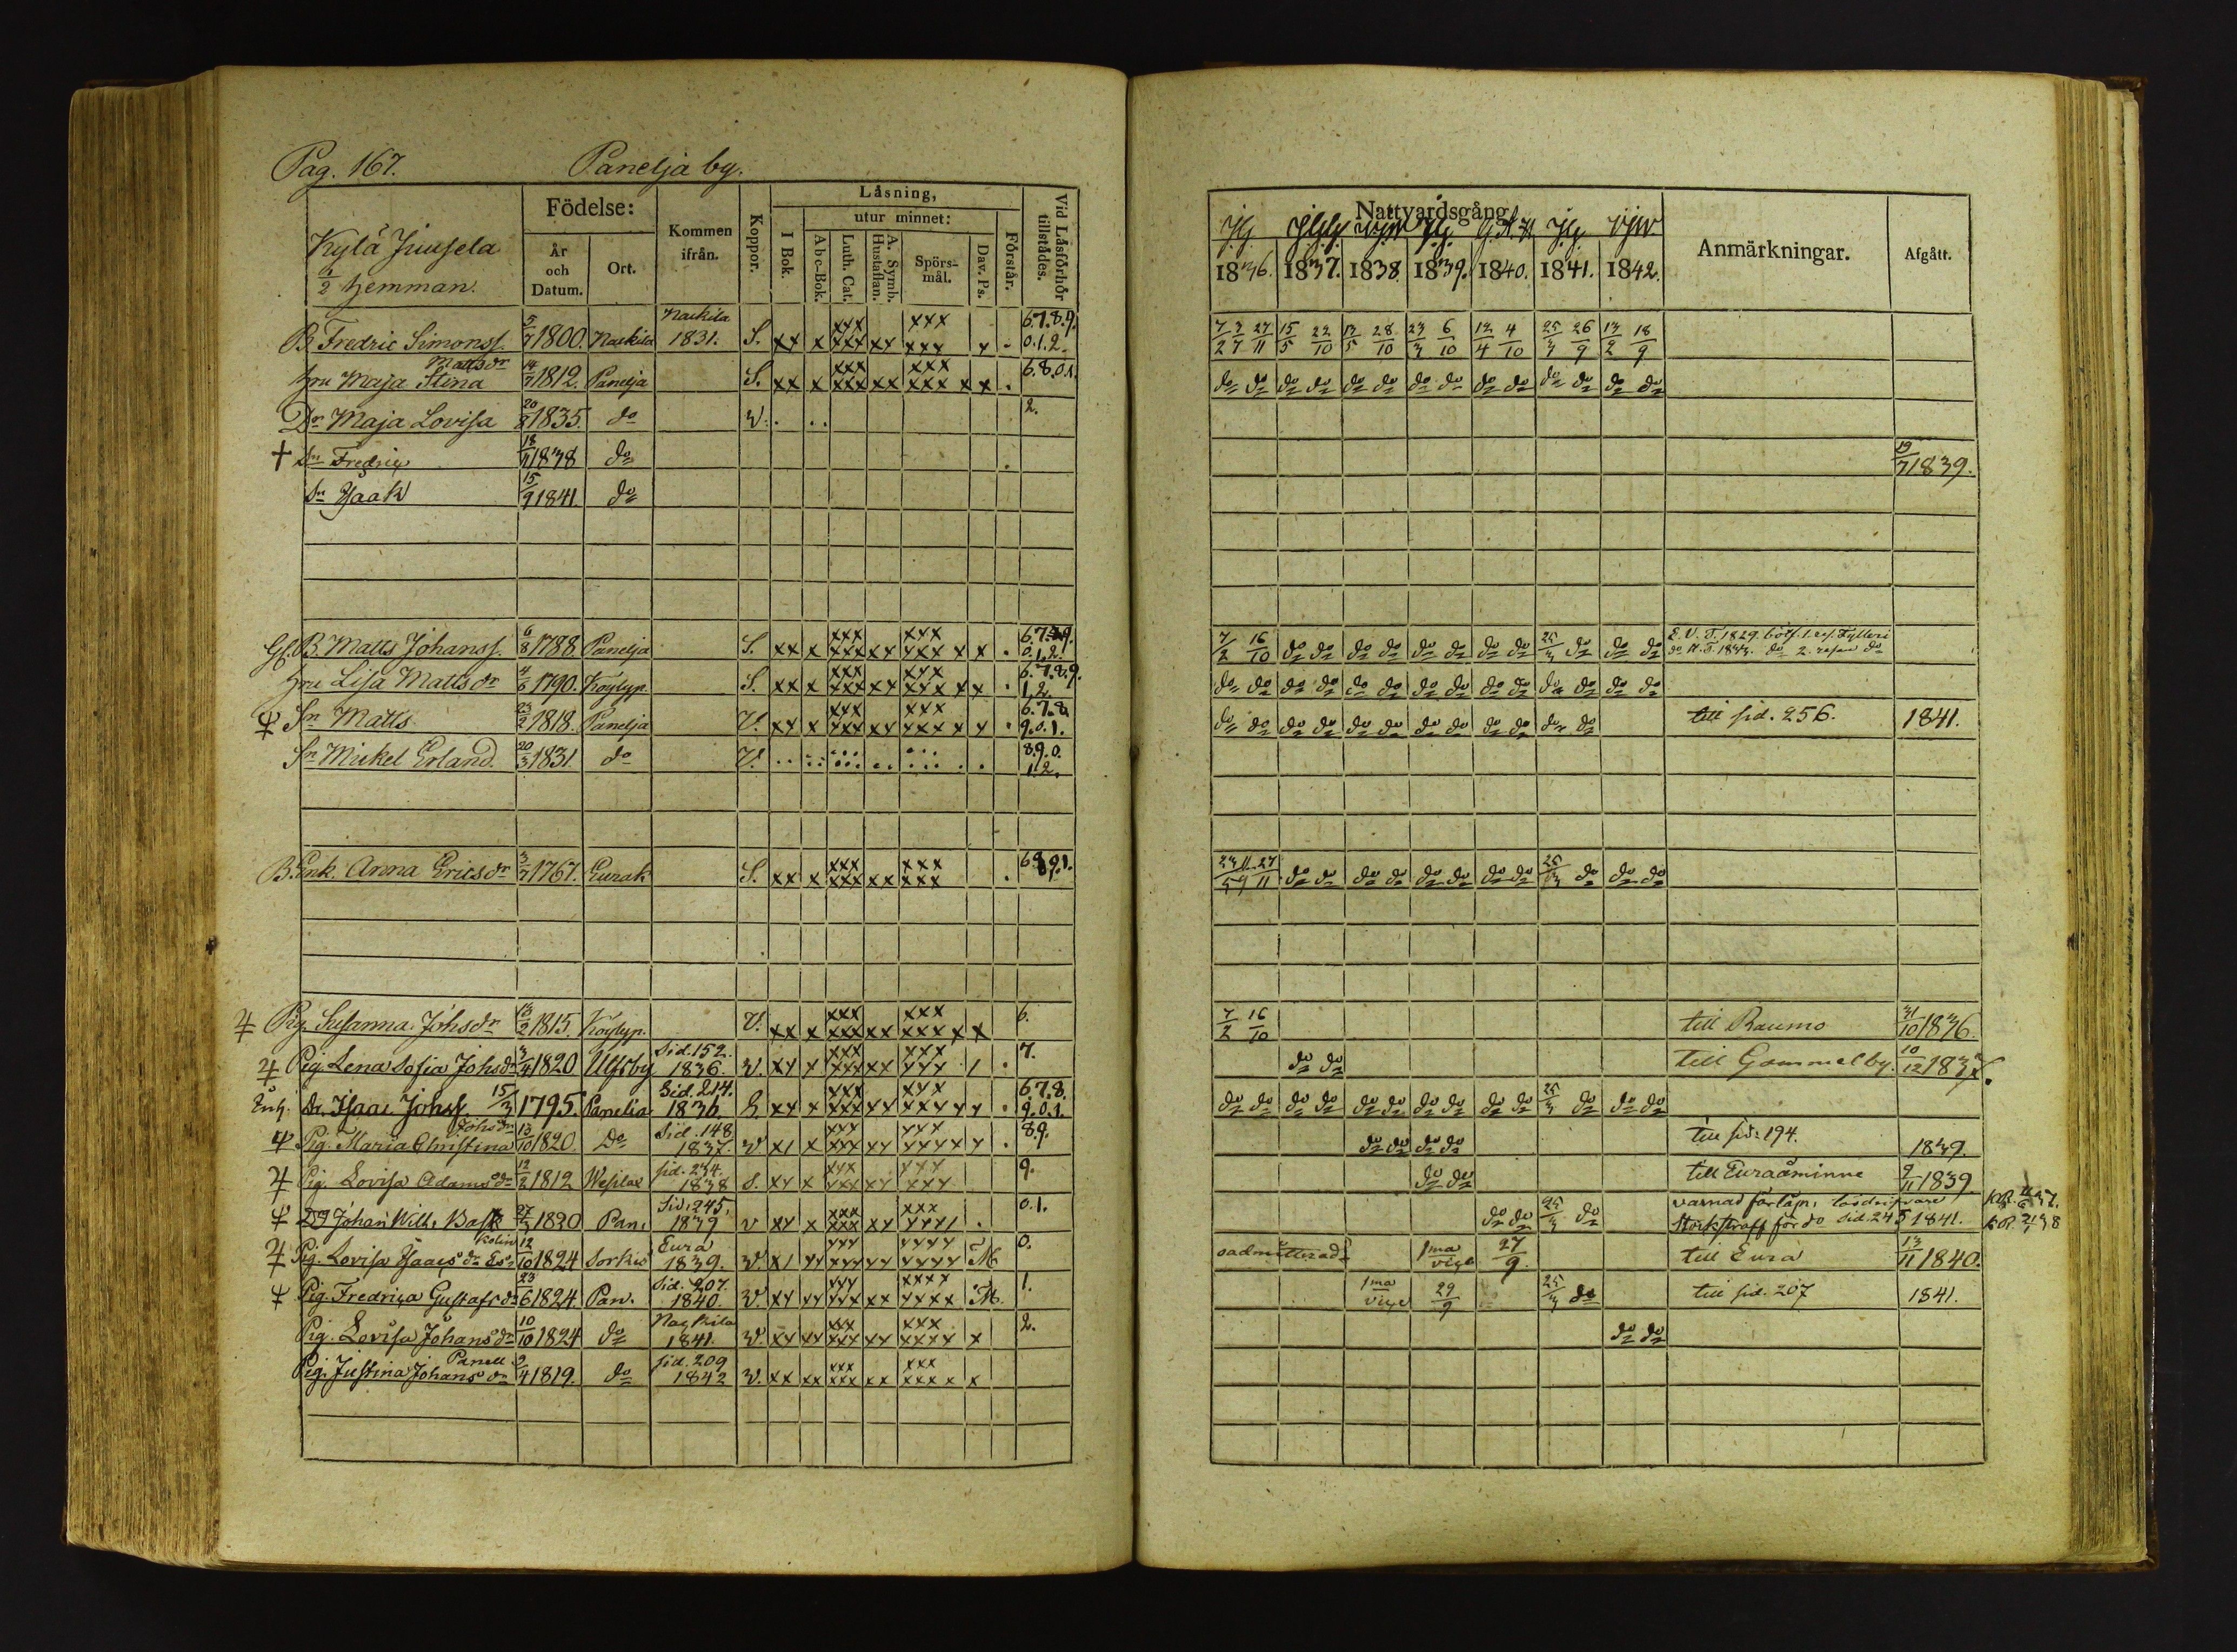 Pag. 167. Panelja by.
Kylä Juusela
1/2 hemman.
Födelse:
År och Datum.
Ort.
Kommen ifrån.
Koppor.
Läsning,
I Bok.
utur minnet:
Abc-Bok.
Luth. Cat.
A. Symb. Hustaflan.
Spörs-mål.
Dav. Ps.
Förstår.
Vid Läsförhör tillstädes.
Nattvardsgång
1836. 1837. 1838. 1839. 1840. 1841. 1842.
Anmärkningar.
Afgått.
B. Fredric Simonss. 5/7 1800. Nackila Nackila 1831. S. xx x xxx xxx xx xxx xxx x 6.7.8.9. 0.1.2. 15/5 22/10 13/5 28/10 23/3 6/10 12/4 4/10 25/3 26/9 13/2 18/9
hru Maja Stina Mattsdr 14/7 1812. Panelja S. xx x xxx xxx xx xxx xxx x x 6.8.0.1. do do do do do do do do do do do do do do
Dr Maja Lovisa 20/8 1835. do v. 2.
† Sn Fredric 18/11 1838 do 19/7 1839.
Sn Isaak 15/9 1841. do
Gf. B. Matts Johanss. 6/8 1788. Panelja S. xx x xxx xxx xx xxx xxx x x 0.1.2. 7/2 16/10 do do do do do do do do 25/3 do do do
hru Lisa Mattsdr 4/6 1790. Köylyp. S. xx x xxx xxx xx xxx xxx x x 6.7.8.9. 1.2. do do do do do do do do do do do do do do
Sn Matts 23/2 1818. Panelja V. xx x xxx xxx xx xxx xxx x x 6.7.8. 9.0.1. do do do do do do do do do do do do till sid. 256. 1841.
Sn Mickel Erland. 20/3 1831. do V. 8.9.0. 1.2.
B. Enk. Anna Ericsdr 3/7 1767. Eurak S. xx x xxx xxx xx xxx xxx do do do do do do do do 25/3 do do do
Pig. Susanna Johsdr 13/2 1815. Köylyp. V. xx x xxx xxx xx xxx xxx x x 6. 7/2 16/10 till Raumo 31/10 1836.
Pig. Lena Sofia Johsdr 3/4 1820 Ulfsby Sid. 152. 1836. v. xx x xxx xxx xx xxx xxx 7. do do till Gammelby. 10/12 1837.
Enk. Dr. Isaac Johss. 15/3 1795. Panelia Sid. 214. 1836. S xx x xxx xxx xx xxx xxx x x 6.7.8. 9.0.1. do do do do do do do do do do 25/3 do do do
Pig. Maria Christina Johsdr 13/10 1820. Do Sid. 148 1837. v x1 x xxx xxx xx xxx xxxx x 8.9. do do do do till sid. 194. 1839.
Pig. Lovisa Adamsdr 12/2 1812 Sid. 234. 1838 S. xx x xxx xxx xx xxx xxx 9. do do till Euraåminne 9/11 1839
Dg Johan Wilh. Bask 27/3 1820 Pan. Sid. 245. 1839 v xx x xxx xxx xx xxx xxx1 0.1. do do 25/3 do varnad
Stockstraff för do sid. 245 1841.
Pig. Lovisa Isaacsdr 12/10 1824 Eura 1839. v. x1 xx xxx xxx xx xxxx xxxx M 0. oadmitterad 1ma vice 27/9. till Eura 13/11 1840.
Pig. Fredrica Gustafsdr 23/6 1824 Pan. Sid. 207. 1840. v. xx xx xxx xxx xx xxxx xxxx M. 1. 1ma vice 29/9 25/3 do till sid. 207 1841.
Pig. Lovisa Johansdr 10/10 1824 do Nackila 1841. v. xx xx xxx xxx xx xxx xxxx x 2. do do
Pig. Justina Johansdr Panell 9/4 1819. do sid. 209 1842 v. xx xx xxx xxx xx xxx xxxx x